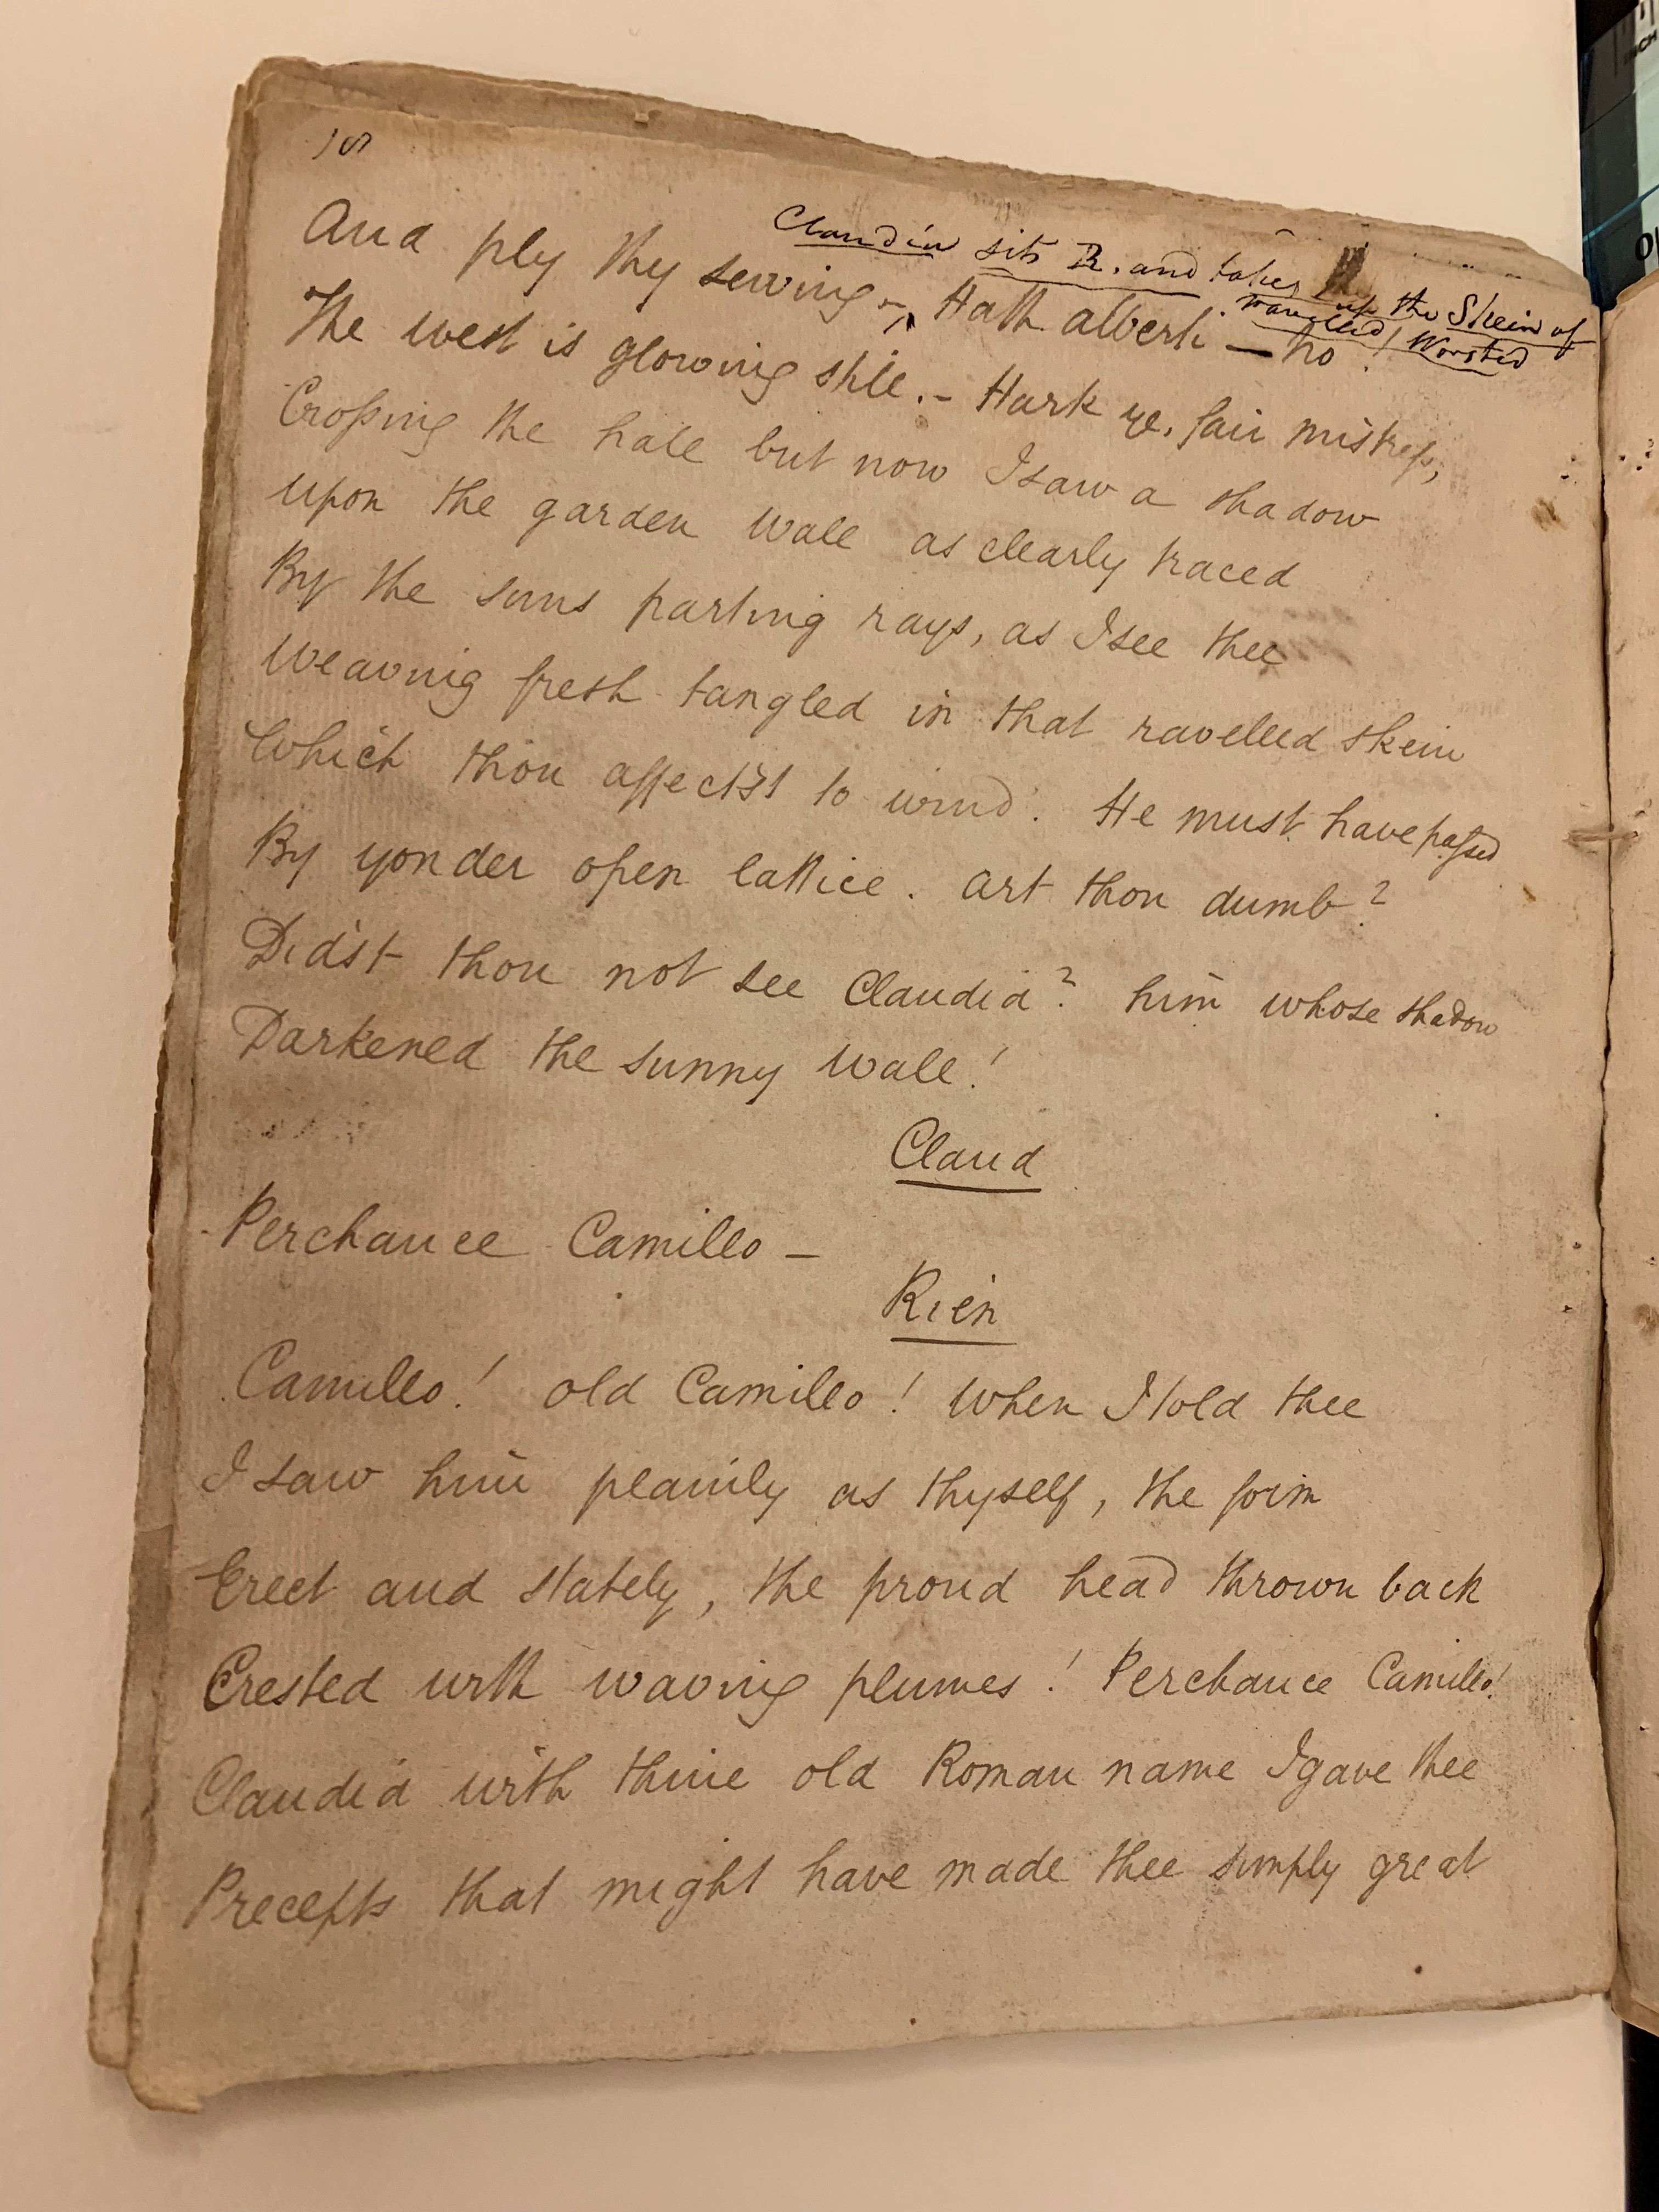 18
Claudia sits R. and takes up the Skein of
ravelled Worsted
And ply thy sewing –, Hath Alberti — no !
The west is glowing still. – Hark ye, fair mistress,
Crossing the hall but now I saw a shadow
Upon the garden wall as clearly traced
By the suns parting rays, as I see thee
Weaving fresh tangled in that ravelled skein
Which thou affectst to wind. He must have passed
By yonder open lattice. Art thou dumb?
Did'st thou not see Claudia? him whose shadow
Darkened the sunny wall!
Claud
Perchance Camillo –
Rien
Camillo! old Camillo! When I told thee
I saw him plainly as thyself, the form
Erect and stately, the proud head thrown back
Crested with waving plumes! Perchance Camillo!
Claudia with thine old Roman name I gave thee
Precepts that might have made thee simply great